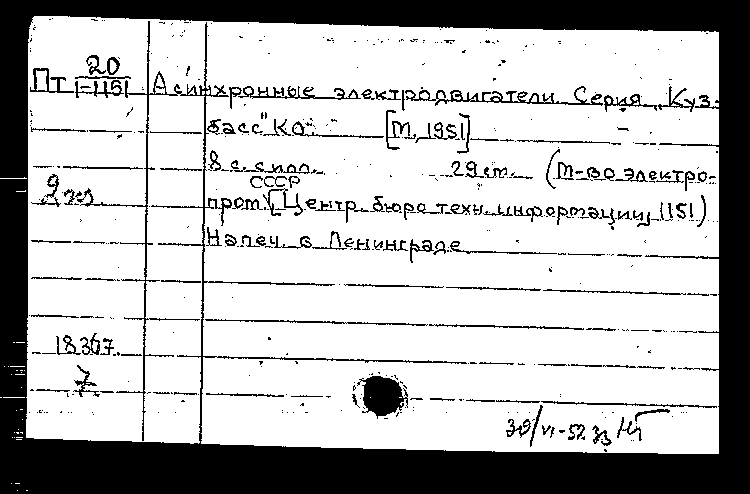 Пт 20/I-1151 Асинхронные электродвигатели. Серия „Куз-
басс" КО. [М, 1951]
8 с. с илл. 29 см. (М-во электро-
2 экз.
пром. СССР [Центр. бюро техн. информации] (151)
Напеч. в Ленинграде
18367.
7
30/VI-52